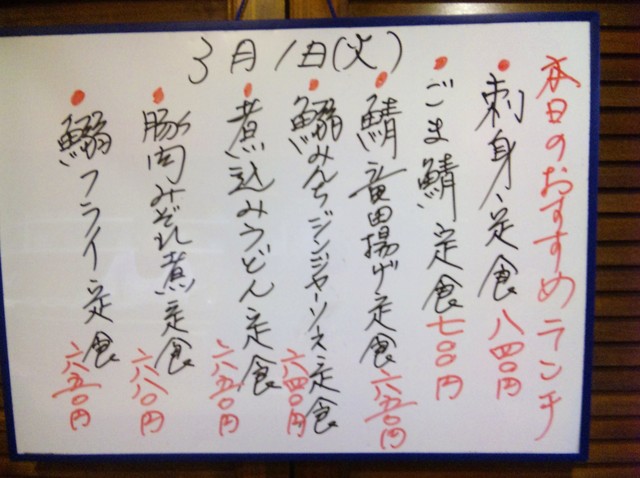 3月1日(火)
本日のおすすめランチ
刺身定食 八四〇円
ごま鯖定食 七〇〇円
鯖竜田揚げ定食 六五〇円
鰯みんちジンジャーソース定食 六四〇円
煮込みうどん定食 六五〇円
豚肉みぞれ煮定食 六八〇円
鰯フライ定食 六五〇円